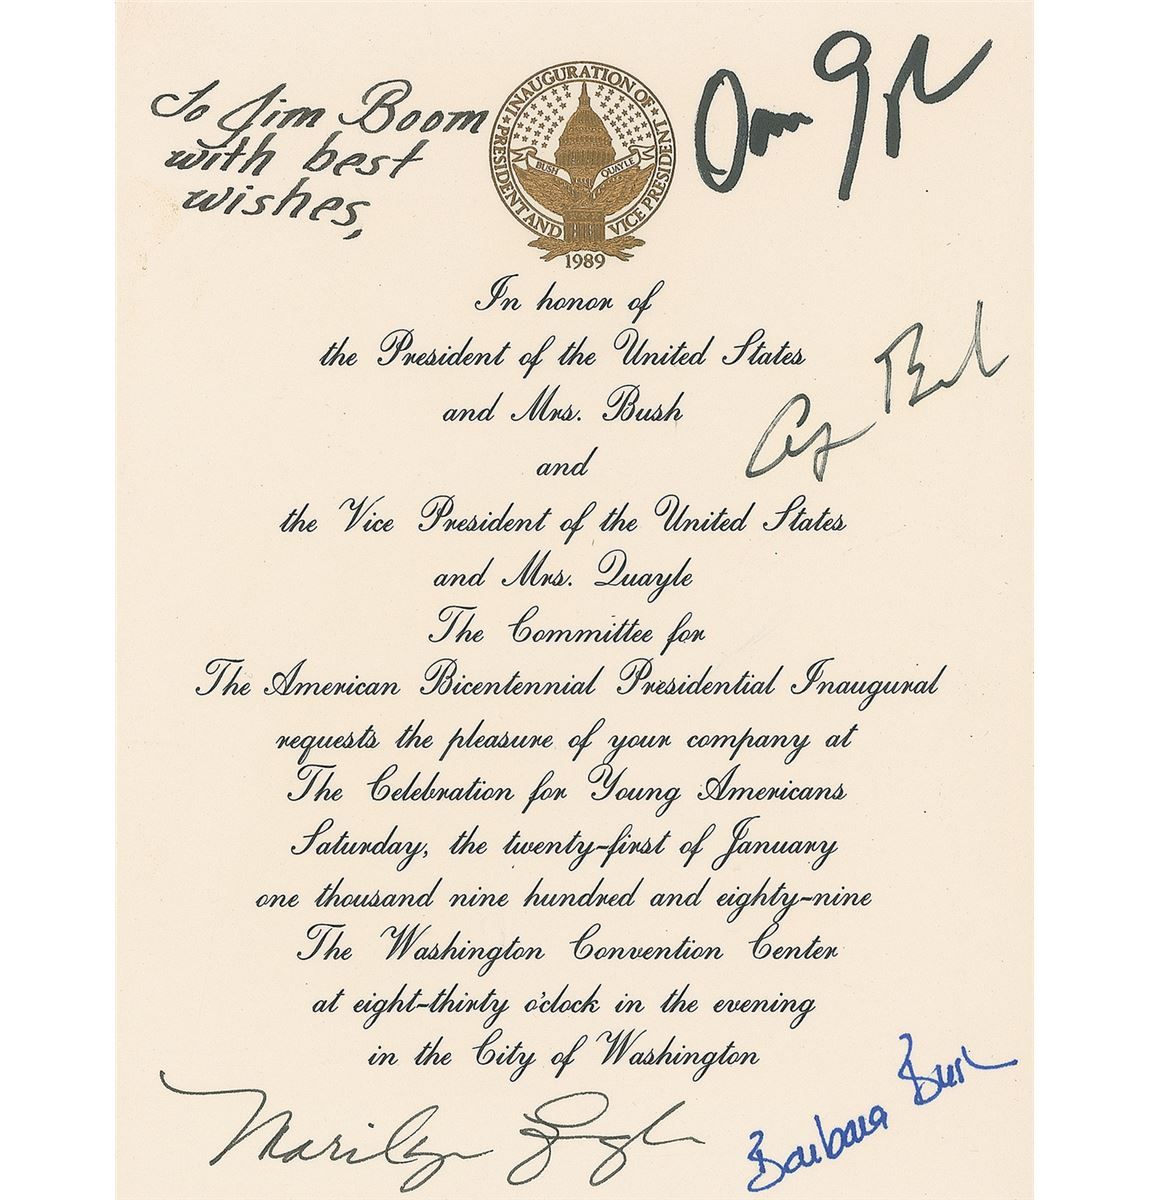 To Jim Boom
with best
wishes,
INAUGURATION OF
PRESIDENT AND VICE PRESIDENT
BUSH QUAYLE
1989
In honor of
the President of the United States
and Mrs. Bush
and
the Vice President of the United States
and Mrs. Quayle
The Committee for
The American Bicentennial Presidential Inaugural
requests the pleasure of your company at
The Celebration for Young Americans
Saturday, the twenty-first of January
one thousand nine hundred and eighty-nine
The Washington Convention Center
at eight-thirty o'clock in the evening
in the City of Washington
Marilyn Quayle
Barbara Bush